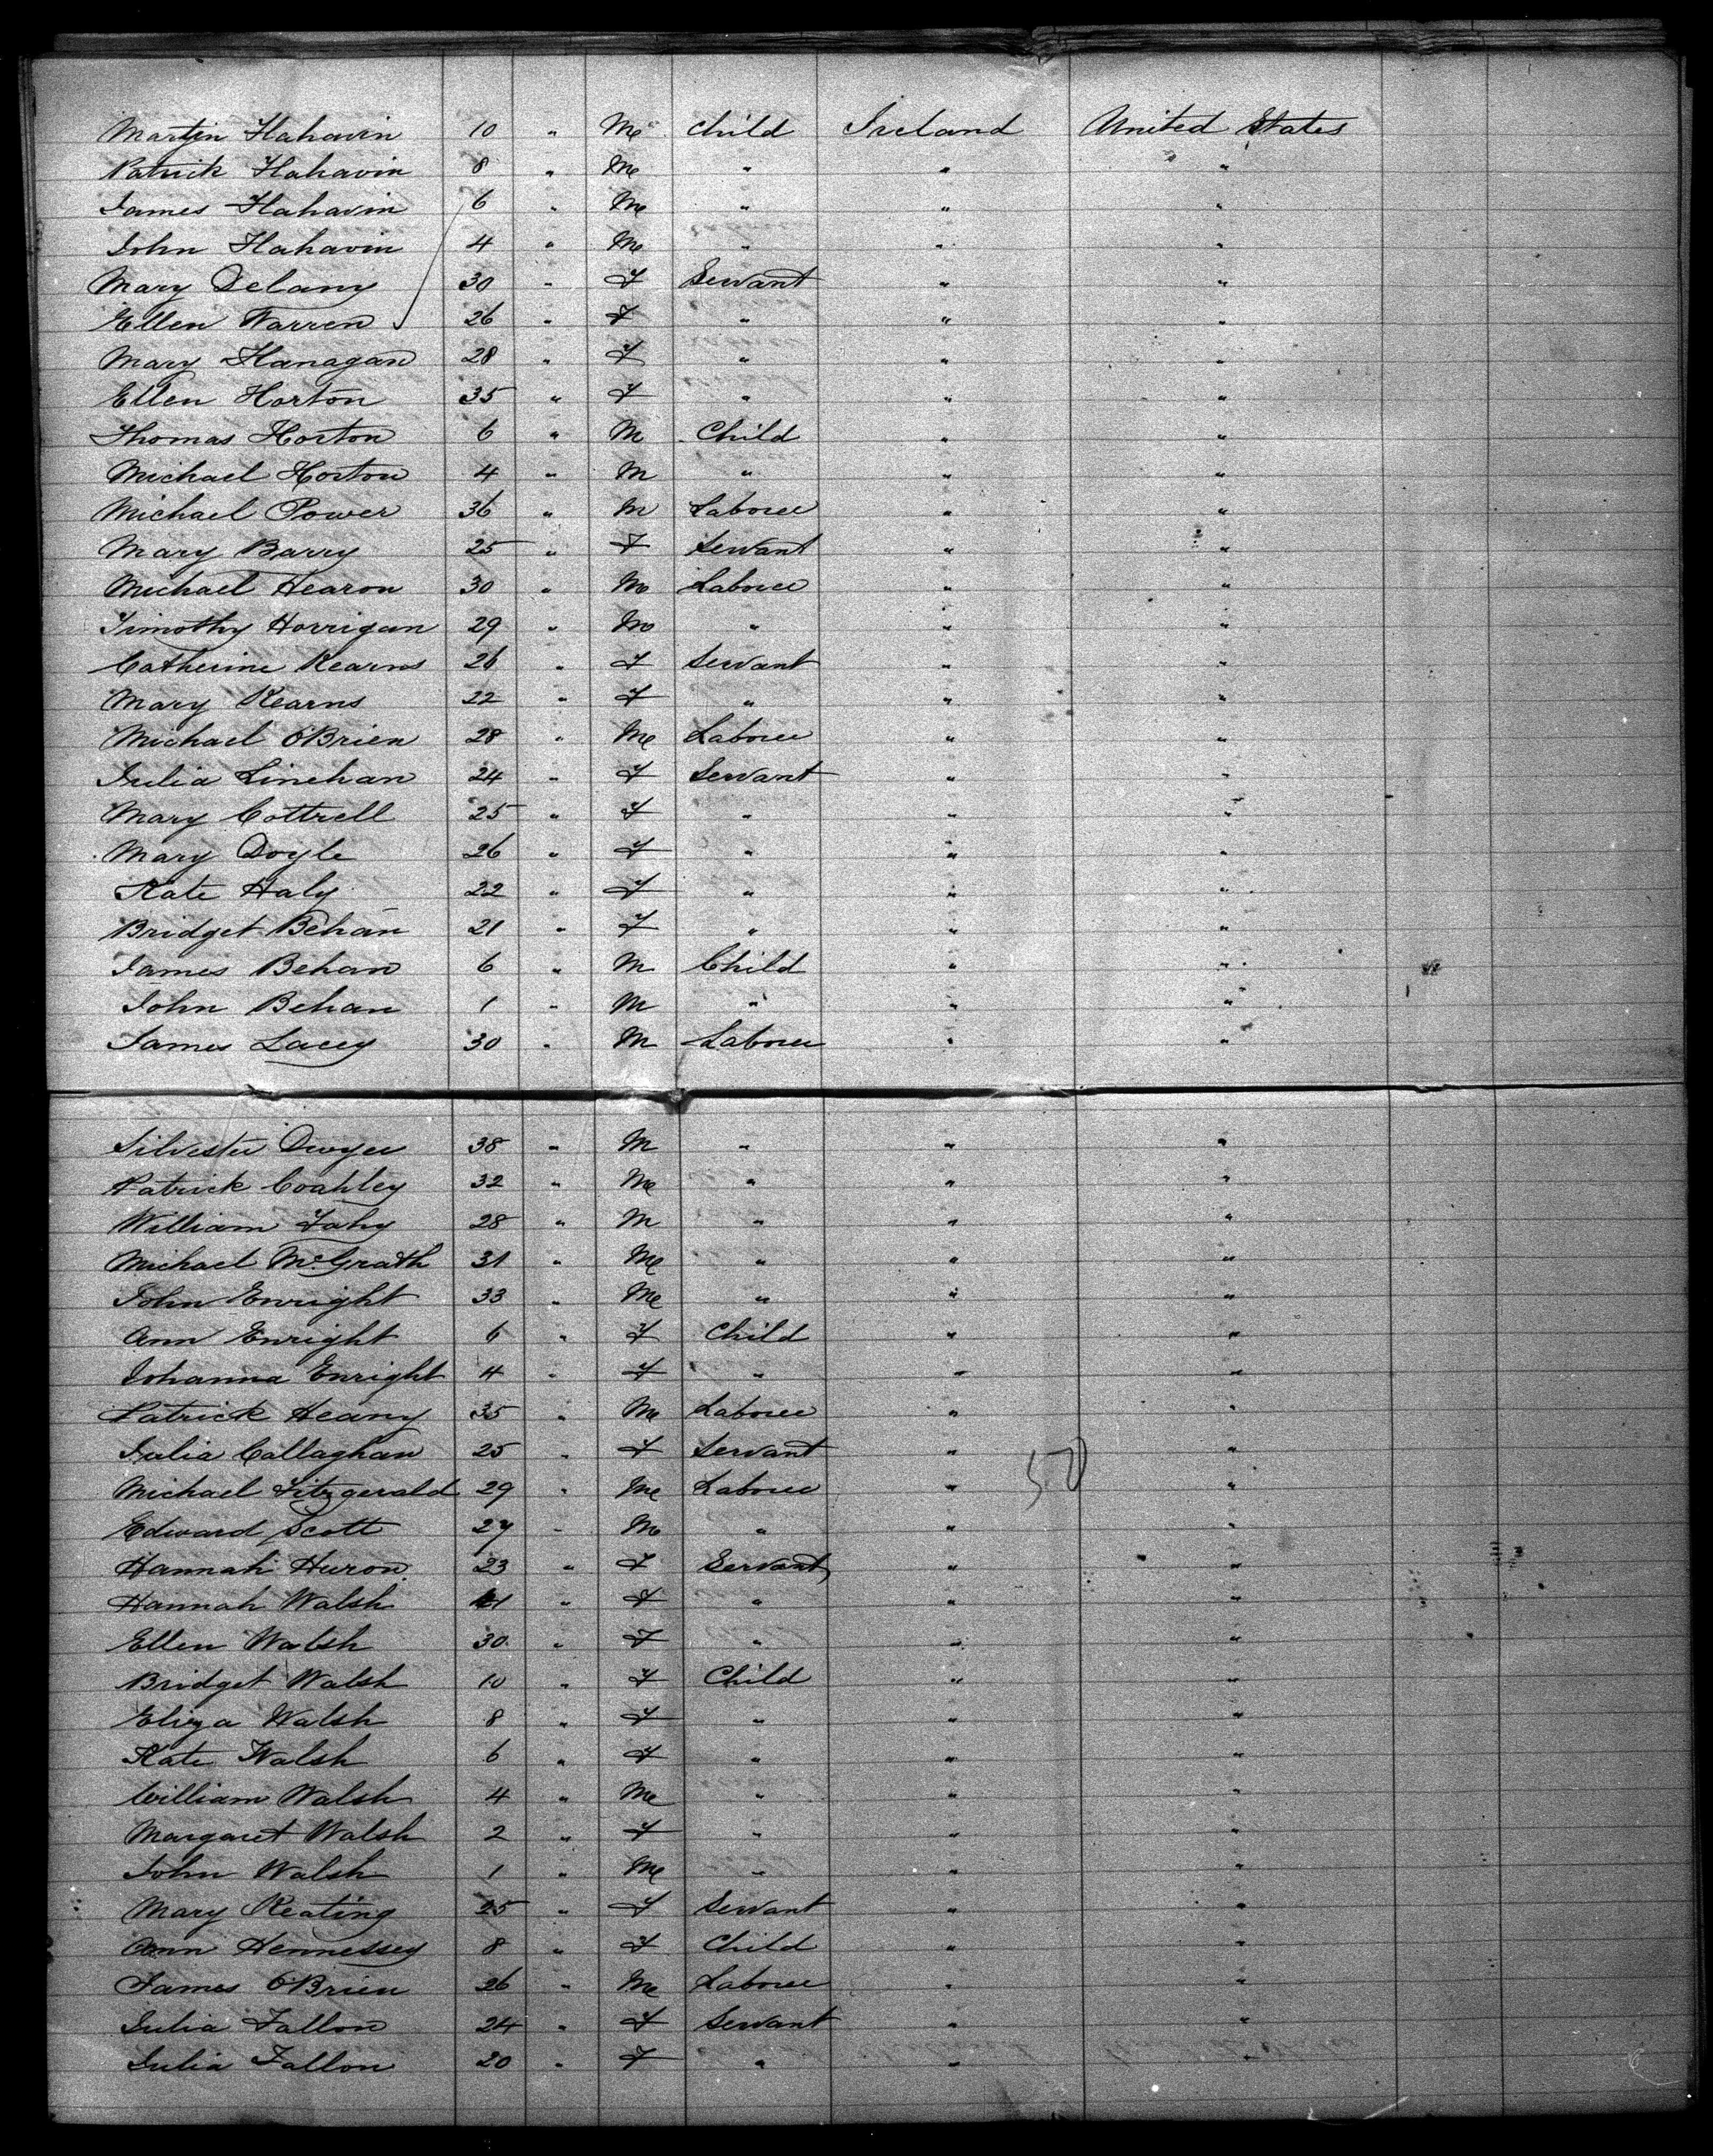 Martin Flahavin 10 " M Child Ireland United States
Patrick Flahavin 8 " M " " "
James Flahavin 6 " M " " "
John Flahavin 4 " M " " "
Mary Delany 30 " F Servant " "
Ellen Warren 26 " F " " "
Mary Flanagan 28 " F " " "
Ellen Horton 35 " F " " "
Thomas Horton 6 " M Child " "
Michael Horton 4 " M " " "
Michael Power 36 " M Laborer " "
Mary Barry 25 " F Servant " "
Michael Hearon 30 " M Laborer " "
Timothy Horrigan 29 " M " " "
Catherine Kearns 26 " F Servant " "
Mary Kearns 22 " F " " "
Michael O'Brien 28 " M Laborer " "
Julia Linehan 24 " F Servant " "
Mary Cottrell 25 " F " " "
Mary Doyle 26 " F " " "
Kate Haly 22 " F " " "
Bridget Behan 21 " F " " "
James Behan 6 " M Child " "
John Behan 1 " M " " "
James Lacey 30 " M Laborer " "
Silvester Dwyer 38 " M " " "
Patrick Coahley 32 " M " " "
William Fahy 28 " M " " "
Michael McGrath 31 " M " " "
John Enright 33 " M " " "
Ann Enright 6 " F Child " "
Johanna Enright 4 " F " " "
Patrick Heany 35 " M Laborer " "
Julia Callaghan 25 " F Servant " "
50
Michael Fitzgerald 29 " M Laborer " "
Edward Scott 27 " M " " "
Hannah Huron 23 " F Servant " "
Hannah Walsh " F " " "
Ellen Walsh 30 " F " " "
Bridget Walsh 10 " F Child " "
Eliza Walsh 8 " F " " "
Kate Walsh 6 " F " " "
William Walsh 4 " M " " "
Margaret Walsh 2 " F " " "
John Walsh 1 " M " " "
Mary Keating 25 " F Servant " "
Ann Hennessey 8 " F Child " "
James O'Brien 26 " M Laborer " "
Julia Fallon 24 " F Servant " "
Julia Fallon 20 " F " " "